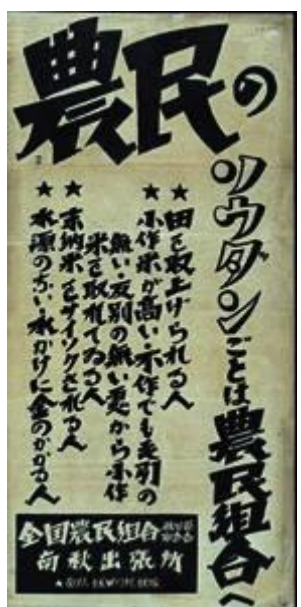 農民の
ソウダンごとは農民組合へ
★田を取上げられる人
★小作米が高い・不作でも差引の
無い・反別の無い悪から小作
米を取れてゐる人
★未納米をサイソクされる人
★水源のない・水かけに金のかかる人
全国農民組合
南秋出張所